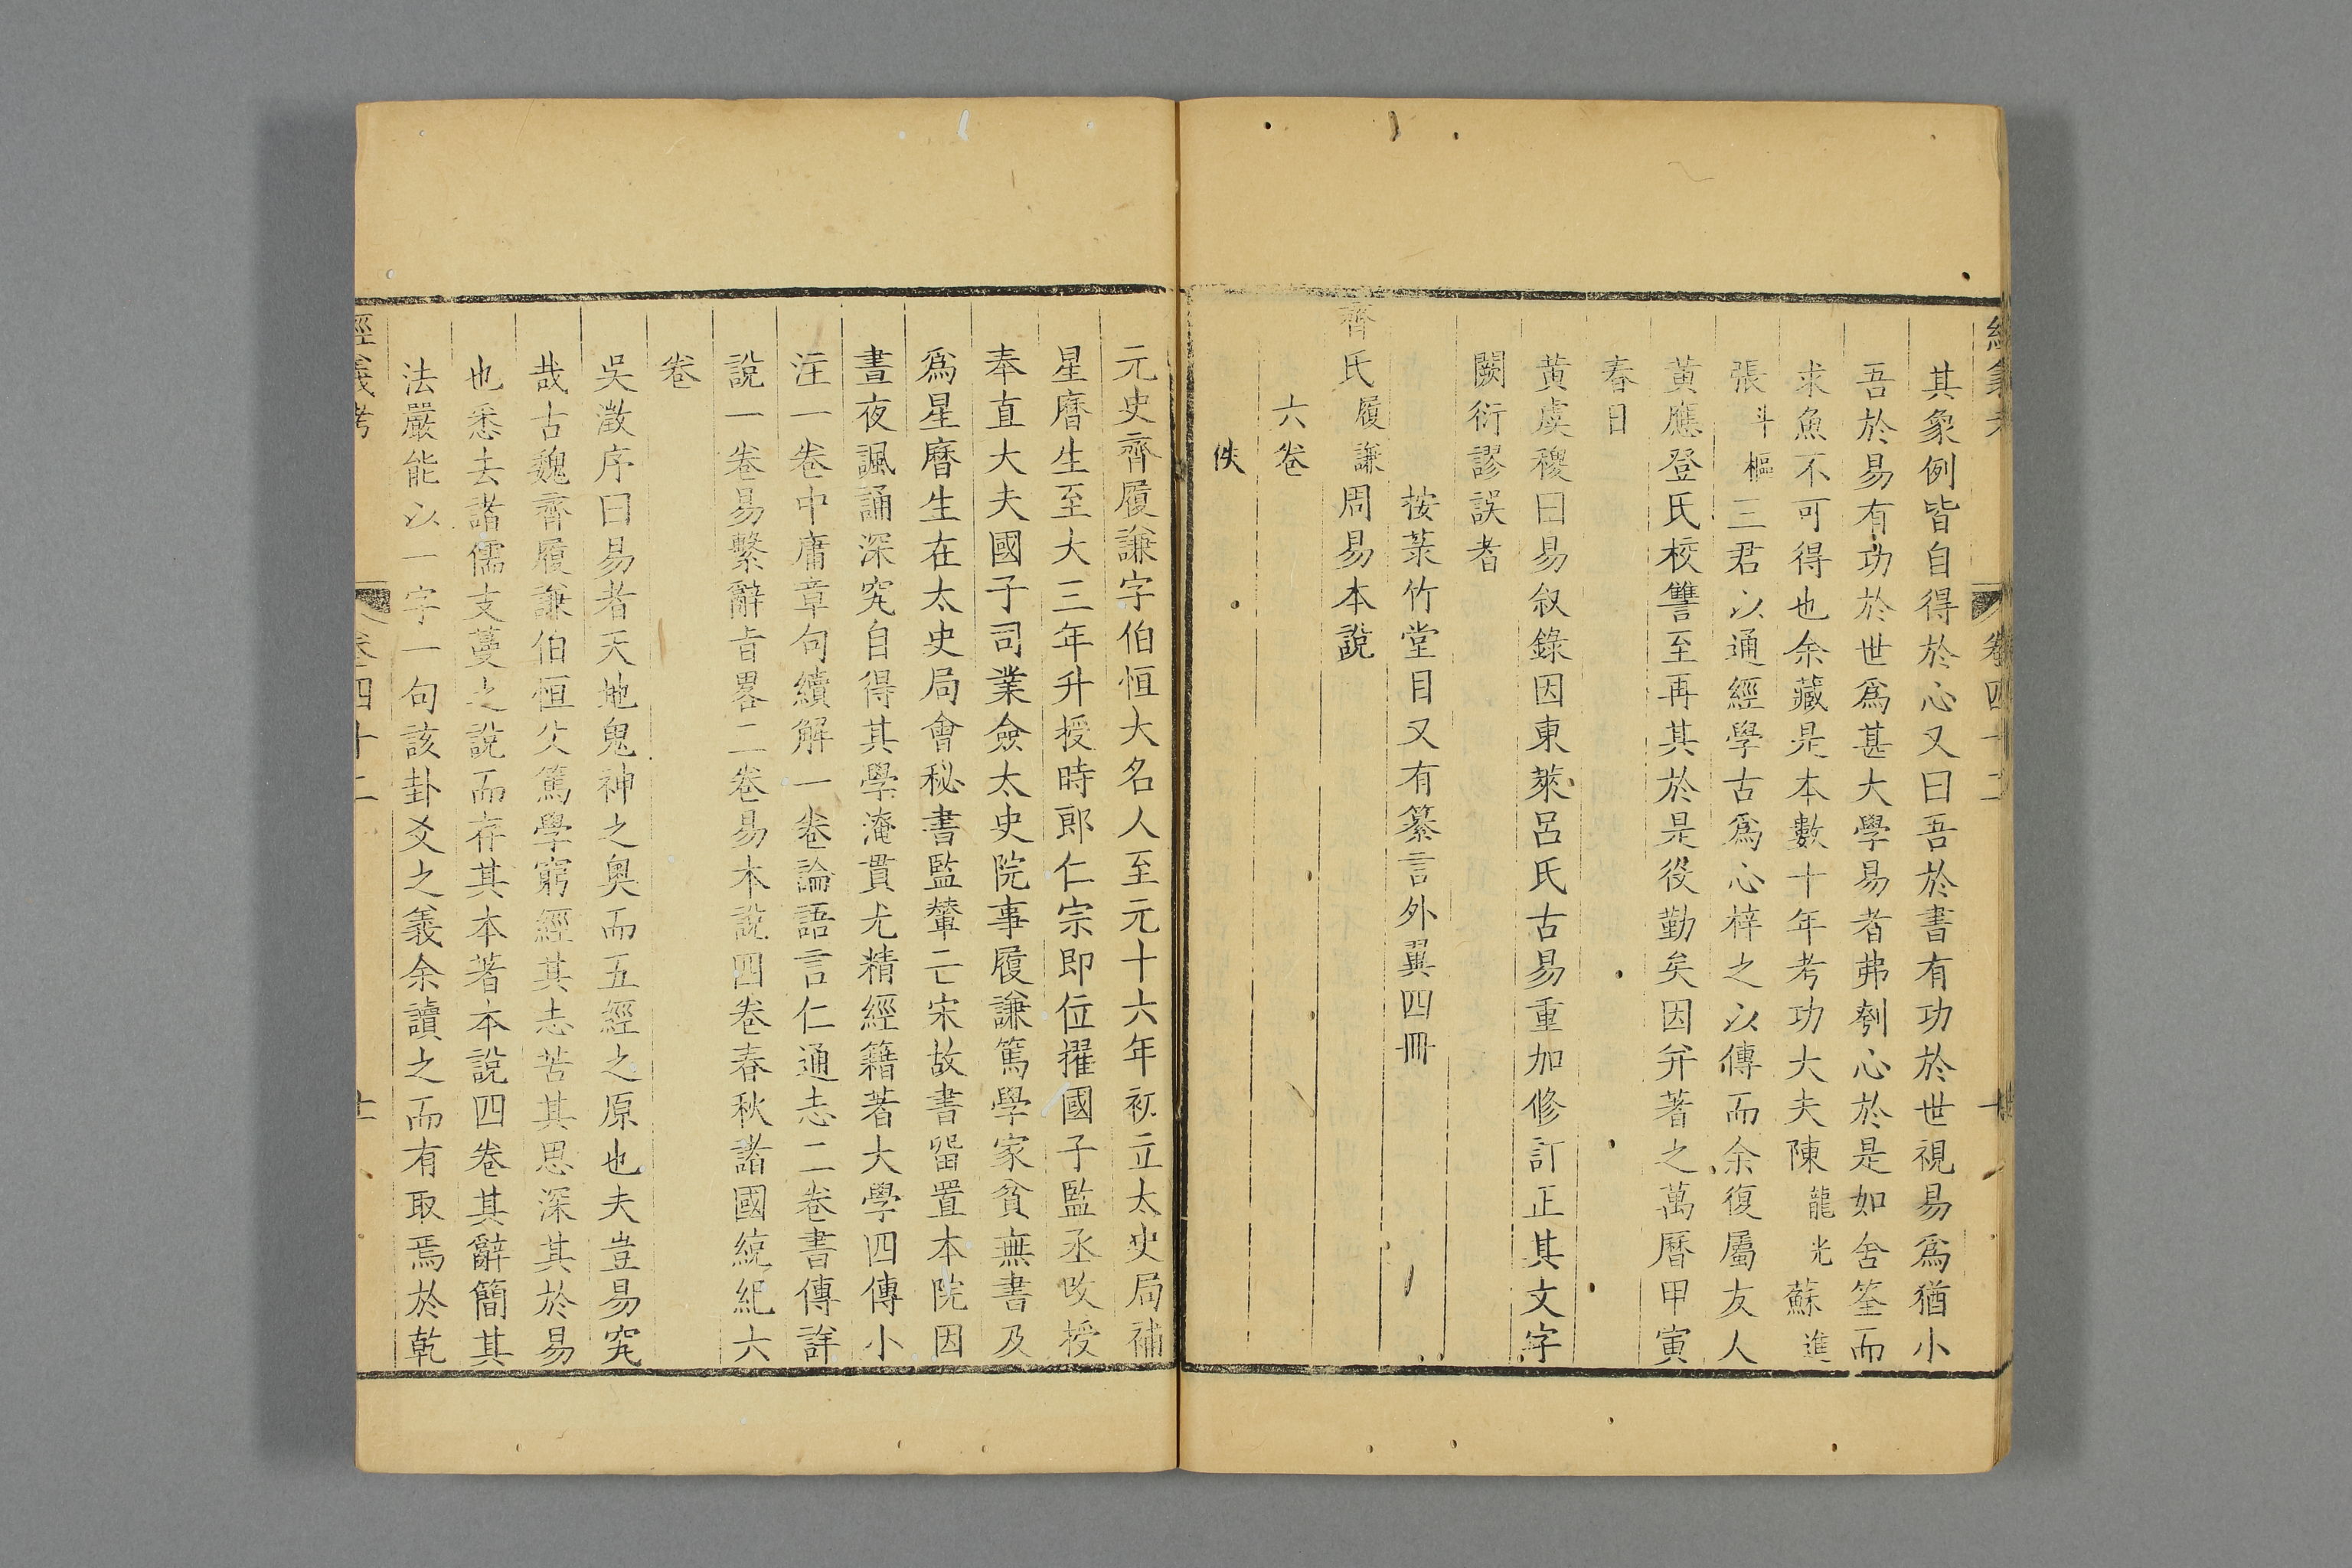 其象例皆自得於心又曰吾於書有功於世視易爲猶小
吾於易有功於世爲甚大學易者弗刳心於是如舍筌而
求魚不可得也余藏是本數十年考功大夫陳龍光蘇進
張斗樞三君以通經學古爲心梓之以傳而余復屬友人
黃應登氏校讐至再其於是役勤矣因并著之萬曆甲寅
春日
黃虞稷曰易叙錄因東萊呂氏古易重加修訂正其文字
闕衍謬誤者
按菉竹堂目又有纂言外翼四冊
齊氏履謙周易本說
六卷
佚
元史齊履謙字伯恒大名人至元十六年初立太史局補
星曆生至大三年升授時郎仁宗即位擢國子監丞改授
奉直大夫國子司業僉太史院事履謙篤學家貧無書及
爲星曆生在太史局會秘書監輦亡宋故書留置本院因
晝夜諷誦深究自得其學淹貫尤精經籍著大學四傳小
注一卷中庸章句續解一卷論語言仁通志二卷書傳詳
說一卷易繫辭旨畧二卷易本說四卷春秋諸國統紀六
卷
吳澂序曰易者天地鬼神之奧而五經之原也夫豈易究
哉古魏齊履謙伯恒父篤學窮經其志苦其思深其於易
也悉去諸儒支蔓之說而存其本著本說四卷其辭簡其
法嚴能以一字一句該卦爻之義余讀之而有取焉於乾
經義考 卷四十二 十一